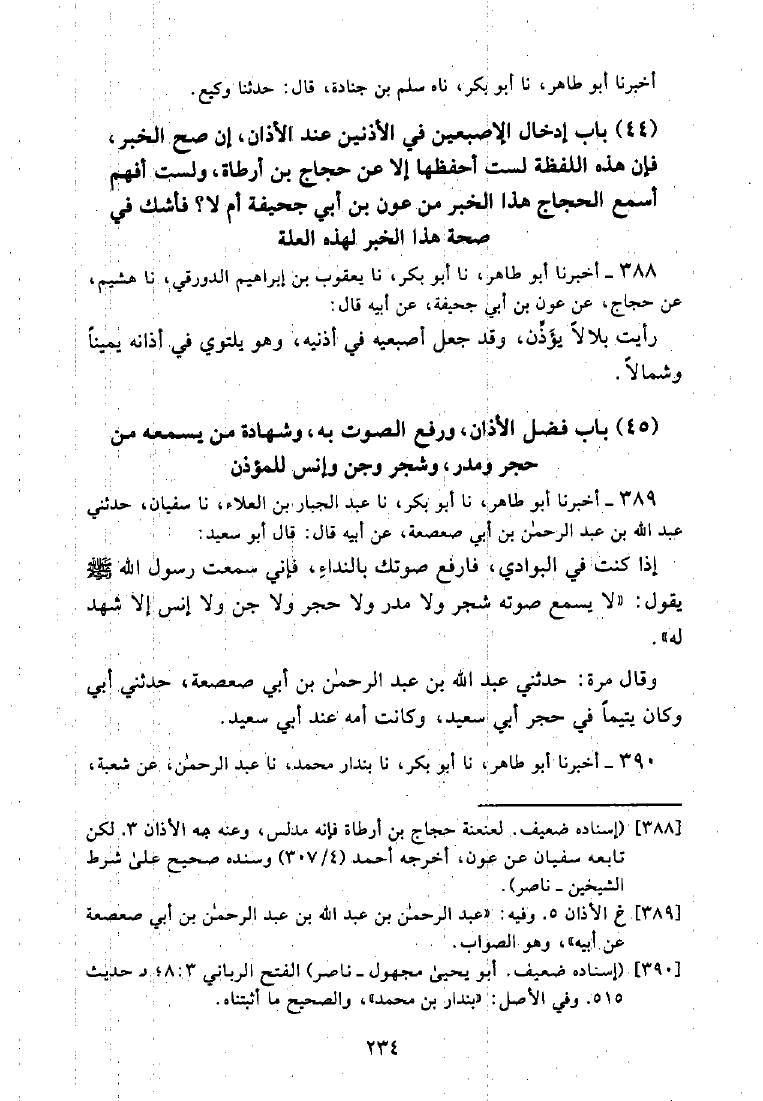 أخبرنا أبو طاهر، نا أبو بكر، ناه سلم بن جنادة، قال: حدثنا وكيع.
(٤٤) باب إدخال الإصبعين في الأذنين عند الأذان، إن صح الخبر،
فإن هذه اللفظة لست أحفظها إلا عن حجاج بن أرطاة، ولست أفهم
أسمع الحجاج هذا الخبر من عون بن أبي جحيفة أم لا؟ فأشك في
صحة هذا الخبر لهذه العلة
٣٨٨ ـ أخبرنا أبو طاهر، نا أبو بكر، نا يعقوب بن إبراهيم الدورقي، نا هشيم،
عن حجاج، عن عون بن أبي جحيفة، عن أبيه قال:
رأيت بلالاً يؤَذِّن، وقد جعل أصبعيه في أذنيه، وهو يلتوي في أذانه يميناً
وشمالاً.
(٤٥) باب فضل الأذان، ورفع الصوت به، وشهادة من يسمعه من
حجر ومدر، وشجر وجن وإنس للمؤذن
٣٨٩ ـ أخبرنا أبو طاهر، نا أبو بكر، نا عبد الجبار بن العلاء، نا سفيان، حدثني
عبد الله بن عبد الرحمٰن بن أبي صعصعة، عن أبيه قال: قال أبو سعيد:
إذا كنت في البوادي، فارفع صوتك بالنداء، فإني سمعت رسول الله ﷺ
يقول: «لا يسمع صوته شجر ولا مدر ولا حجر ولا جن ولا إنس إلا شهد
له».
وقال مرة: حدثني عبد الله بن عبد الرحمٰن بن أبي صعصعة، حدثني أبي
وكان يتيماً في حجر أبي سعيد، وكانت أمه عند أبي سعيد.
٣٩٠ ـ أخبرنا أبو طاهر، نا أبو بكر، نا بندار محمد، نا عبد الرحمٰن، عن شعبة،
[٣٨٨] (إسناده ضعيف. لعنعنة حجاج بن أرطاة فإنه مدلس، وعنه جه الأذان ٣. لكن
تابعه سفيان عن عون، أخرجه أحمد (٣٠٧/٤) وسنده صحيح علىٰ شرط
الشيخين ـ ناصر).
[٣٨٩] خ الأذان ٥. وفيه: «عبد الرحمٰن بن عبد الله بن عبد الرحمٰن بن أبي صعصعة
عن أبيه»، وهو الصواب.
[٣٩٠] (إسناده ضعيف. أبو يحيىٰ مجهول ـ ناصر) الفتح الرباني ٣:٤٨؛ د حديث
٥١٥. وفي الأصل: «بندار بن محمد»، والصحيح ما أثبتناه.
٢٣٤